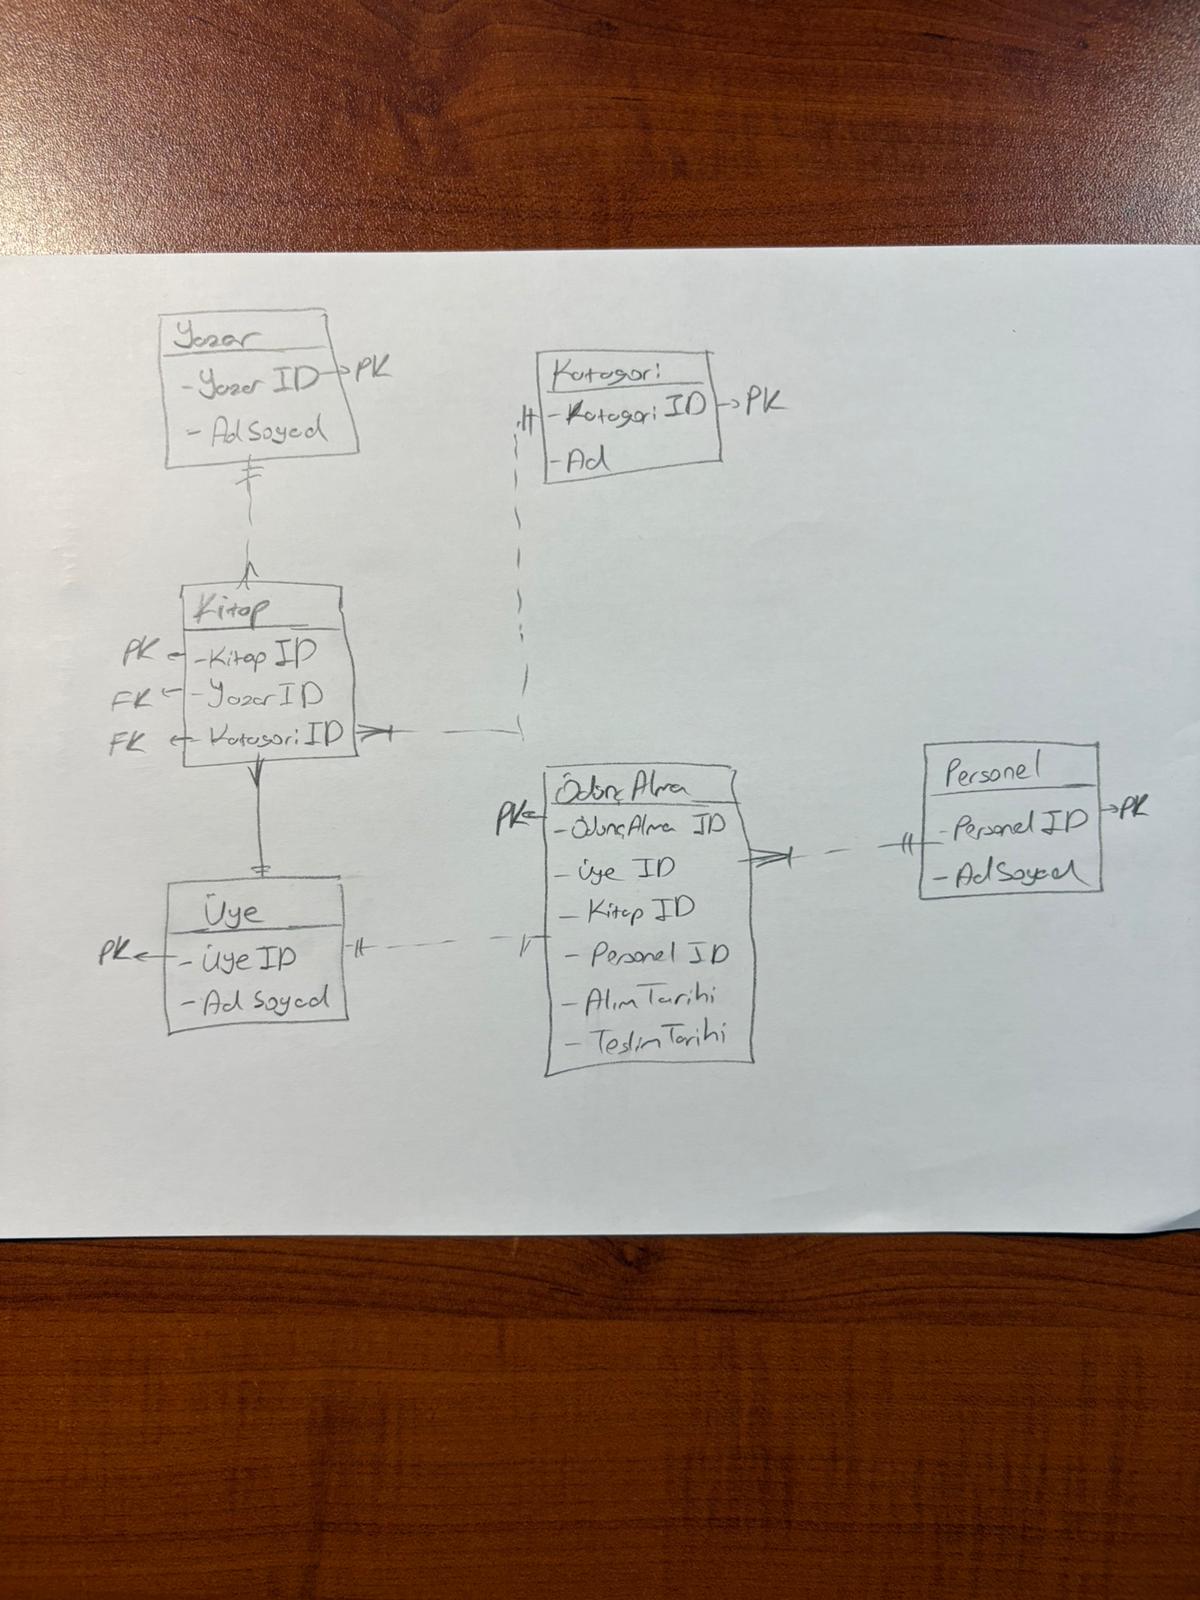 Yazar
- Yazar ID → PK
- Ad Soyad
Katagori
- Katagori ID → PK
- Ad
Kitap
PK ← - Kitap ID
FK ← - Yazar ID
FK ← - Katagori ID
Ödünç Alma
PK ← - Ödünç Alma ID
- Üye ID
- Kitap ID
- Personel ID
- Alım Tarihi
- Teslim Tarihi
Personel
- Personel ID → PK
- Ad Soyad
Üye
PK ← - Üye ID
- Ad Soyad